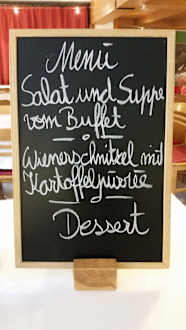 Menü
Salat und Suppe
vom Buffet
Wienerschnitzel mit
Kartoffelpürée
Dessert